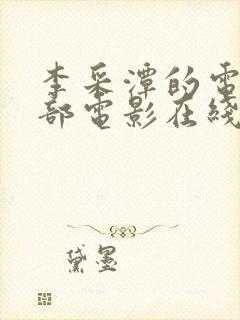 李采潭的電
部電影在綫
黛墨